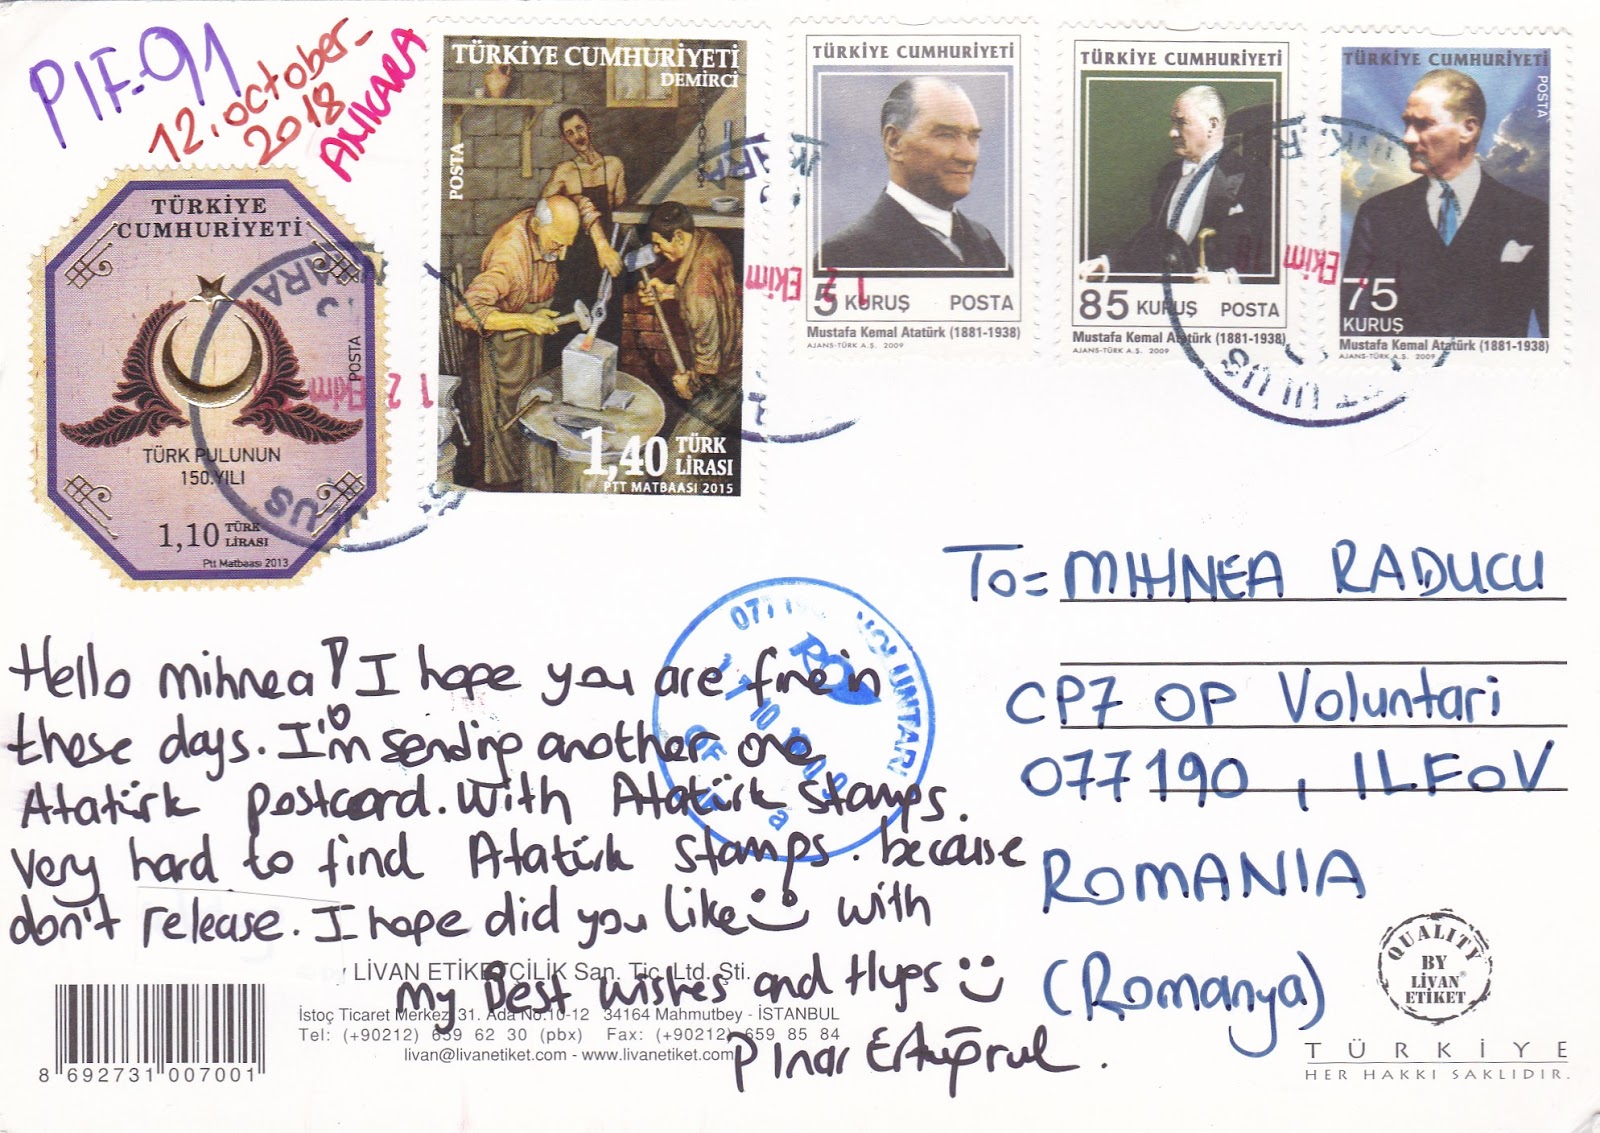 PIF-91
12. October-
2018
ANKARA
TÜRKİYE CUMHURİYETİ
DEMİRCİ
POSTA
1,40 TÜRK LİRASI
PTT MATBAASI 2015
TÜRKİYE CUMHURİYETİ
5 KURUŞ POSTA
Mustafa Kemal Atatürk (1881-1938)
AJANS-TÜRK A.Ş. 2009
TÜRKİYE CUMHURİYETİ
85 KURUŞ POSTA
Mustafa Kemal Atatürk (1881-1938)
AJANS-TÜRK A.Ş. 2009
TÜRKİYE CUMHURİYETİ
POSTA
75
KURUŞ
Mustafa Kemal Atatürk (1881-1938)
AJANS-TÜRK A.Ş. 2009
TÜRKİYE
CUMHURİYETİ
POSTA
TÜRK PULUNUN
150.YILI
1,10 TÜRK LİRASI
Ptt Matbaası 2013
12 Ekim
12 Ekim
Ekim
ULUS
ULUS
To= MIHNEA RADUCU
CP7 OP Voluntari
077190, ILFOV
ROMANIA
(Romanya)
VOLUNTARI
17 10
Hello mihnea! I hope you are fine in
these days. I'm sending another one
Atatürk postcard. With Atatürk stamps.
Very hard to find Atatürk stamps. because
don't release. I hope did you like with
my Best wishes and Hugs
Pınar Ertuğrul.
LİVAN ETİKETÇİLİK San. Tic. Ltd. Şti.
İstoç Ticaret Merkezi 31. Ada No:10-12 34164 Mahmutbey - İSTANBUL
Tel: (+90212) 659 62 30 (pbx) Fax: (+90212) 659 85 84
livan@livanetiket.com - www.livanetiket.com
8 692731 007001
QUALITY
BY
LİVAN®
ETİKET
TÜRKİYE
HER HAKKI SAKLIDIR.